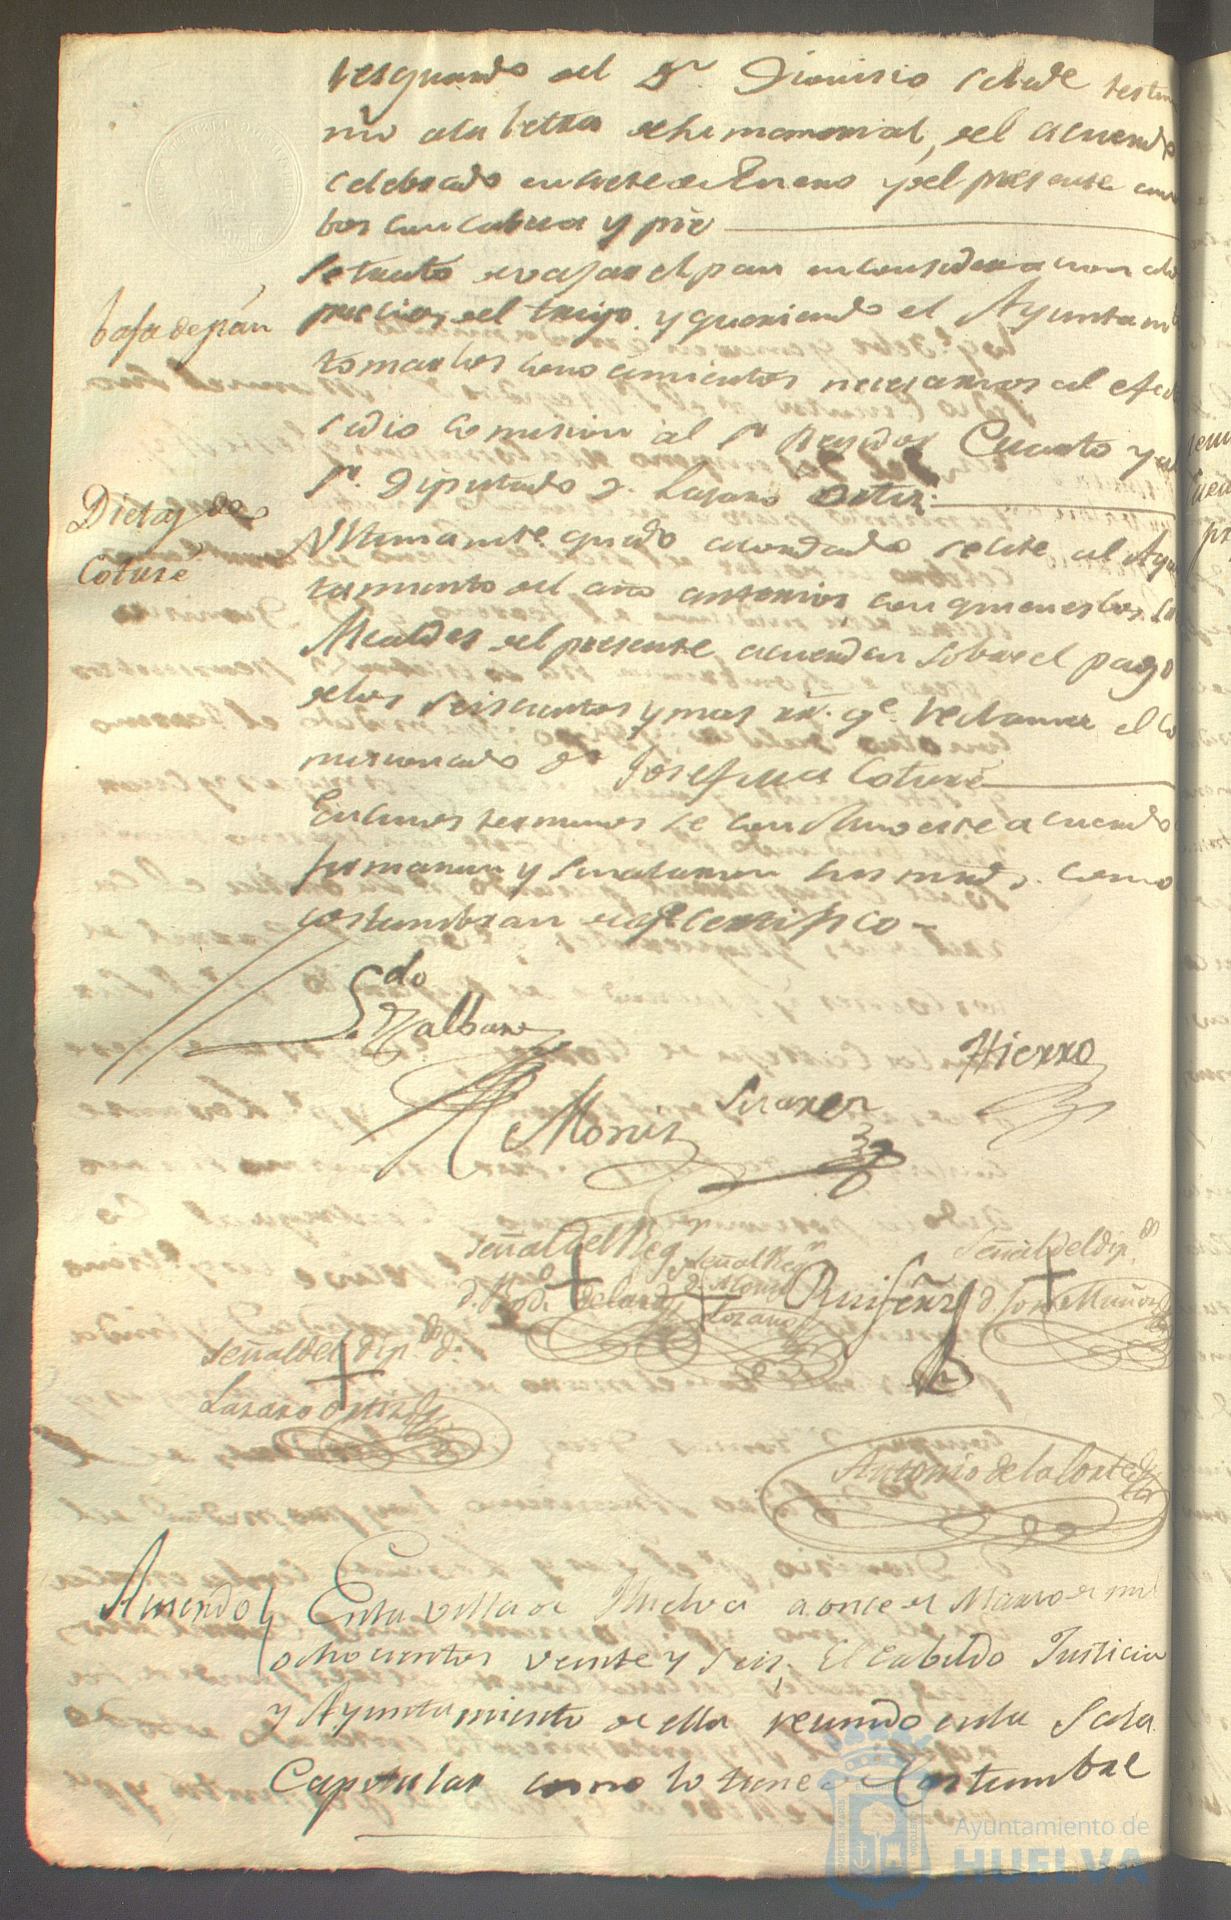 resguardo del Sr. Dionisio se le de testimo
nio ala letra de su memorial, del acuerdo
celebrado en siete de Enero y del presente am
bos con cabeza y pie
Se trató de vajar el pan en consideracion alos
precios del trigo y queriendo el Ayuntamto
tomar los conocimientos necesarios al efecto
se dio comision al Sr Regidor Cuarto y al
Sr. Diputado D. Lazaro Ortiz.
baja de pan
Ultimamte. quedo acordado se cite al Ayun
tamiento del año anterior con quienes los Sres
Alcaldes del presente acuerden sobre el pago
delos seiscientos y mas rr. qe. reclama el Co
misionado Dn Josef Coturé
Dietas de
Coturé
En cuios terminos se concluio este acuerdo
firmaran y señalaran sus mrds. como
costumbran de qe certifico
Sdo
Zalbare
Hierro
Moris
Suarez
Señal del Reg
Señal Reg
D. Alonso
Lozano
Ruifernz
Señal del dip.do
D. Jose Muñoz
Señal del dip.do D.
Lazaro Ortiz
Antonio de la Corte
Acuerdo
En la villa de Huelva a once de Marzo de mil
ochocientos veinte y seis, El Cabildo Justicia
y Ayuntamiento de ella reunido en la Sala
Capitular como lo tiene de Costumbre
Ayuntamiento de
HUELVA